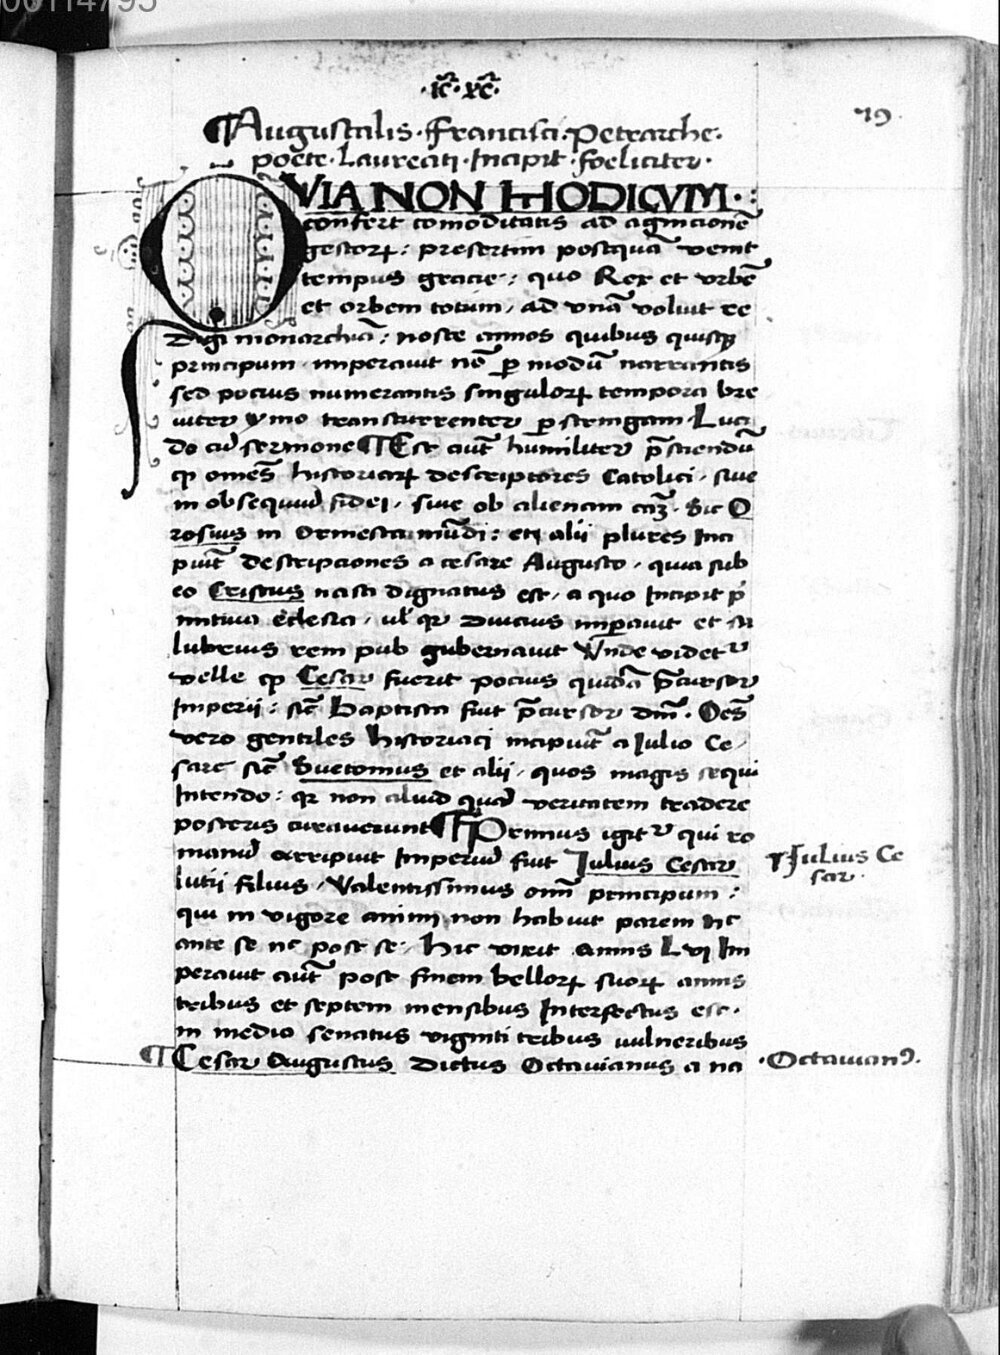 00114795
·ic̄·xc̄·
79.
¶Augustalis·francisci·Petrarche·
poete·Laureati·Incipit·foeliciter·
QVIA NON MODICVM·:
confert comoditatis ad agnicionē
gestoꝝ: presertim postquā venit
tempus gracie: quo Rex et vrbē
et orbem totum, ad vnā voluit re
digi monarchiā: nosse annos quibus quisꝗ
principum imperauit nō ꝑ modū narrantis
sed pocius numerantis singuloꝝ tempora bre
uiter ymo transcurrenter ꝑstringam Luci
do cū sermone ¶Est aūt humiliter p̄sciendū
ꝙ omnes historiaꝝ descriptores Catolici, siue
in obsequiū fidei, siue ob aliquam cāꝫ. Sic O
rosius in Ormesta mūdi: et alii plures Inci
piūt descripciones a cesare Augusto, quia sub
eo Cristus nasci dignatus est, a quo Incipit p̄
mitiua ecclesia, ul' qr diucius imꝑauit et sa
lubrius rem pub gubernauit Vnde videtr
velle ꝙ Cesar fuerit pocius quidā p̄cursor
Imperii: sic̄ baptista fuit p̄cursor dm̄. Oēs
vero gentiles historiaci incipiūt a Iulio Ce
sare sic̄ Suetonius et alii, quos magis sequi
Intendo: qr non aliud quā veritatem tradere
posteris curauerunt ¶Primus igitr qui ro
manū arripuit Imperiū fuit Iulius Cesar
¶Iulius Ce
sar.
lutii filius, Valentissimus om̄i principum:
qui in vigore animi non habuit parem nc
ante se nc post se. Hic vixit annis LVI Im
perauit aūt post finem belloꝝ suoꝝ annis
tribus et septem mensibus Interfectus est.
in medio senatus viginti tribus vulneribus
¶Cesar Augustus dictus Octauianus a na
·Octauianꝰ.